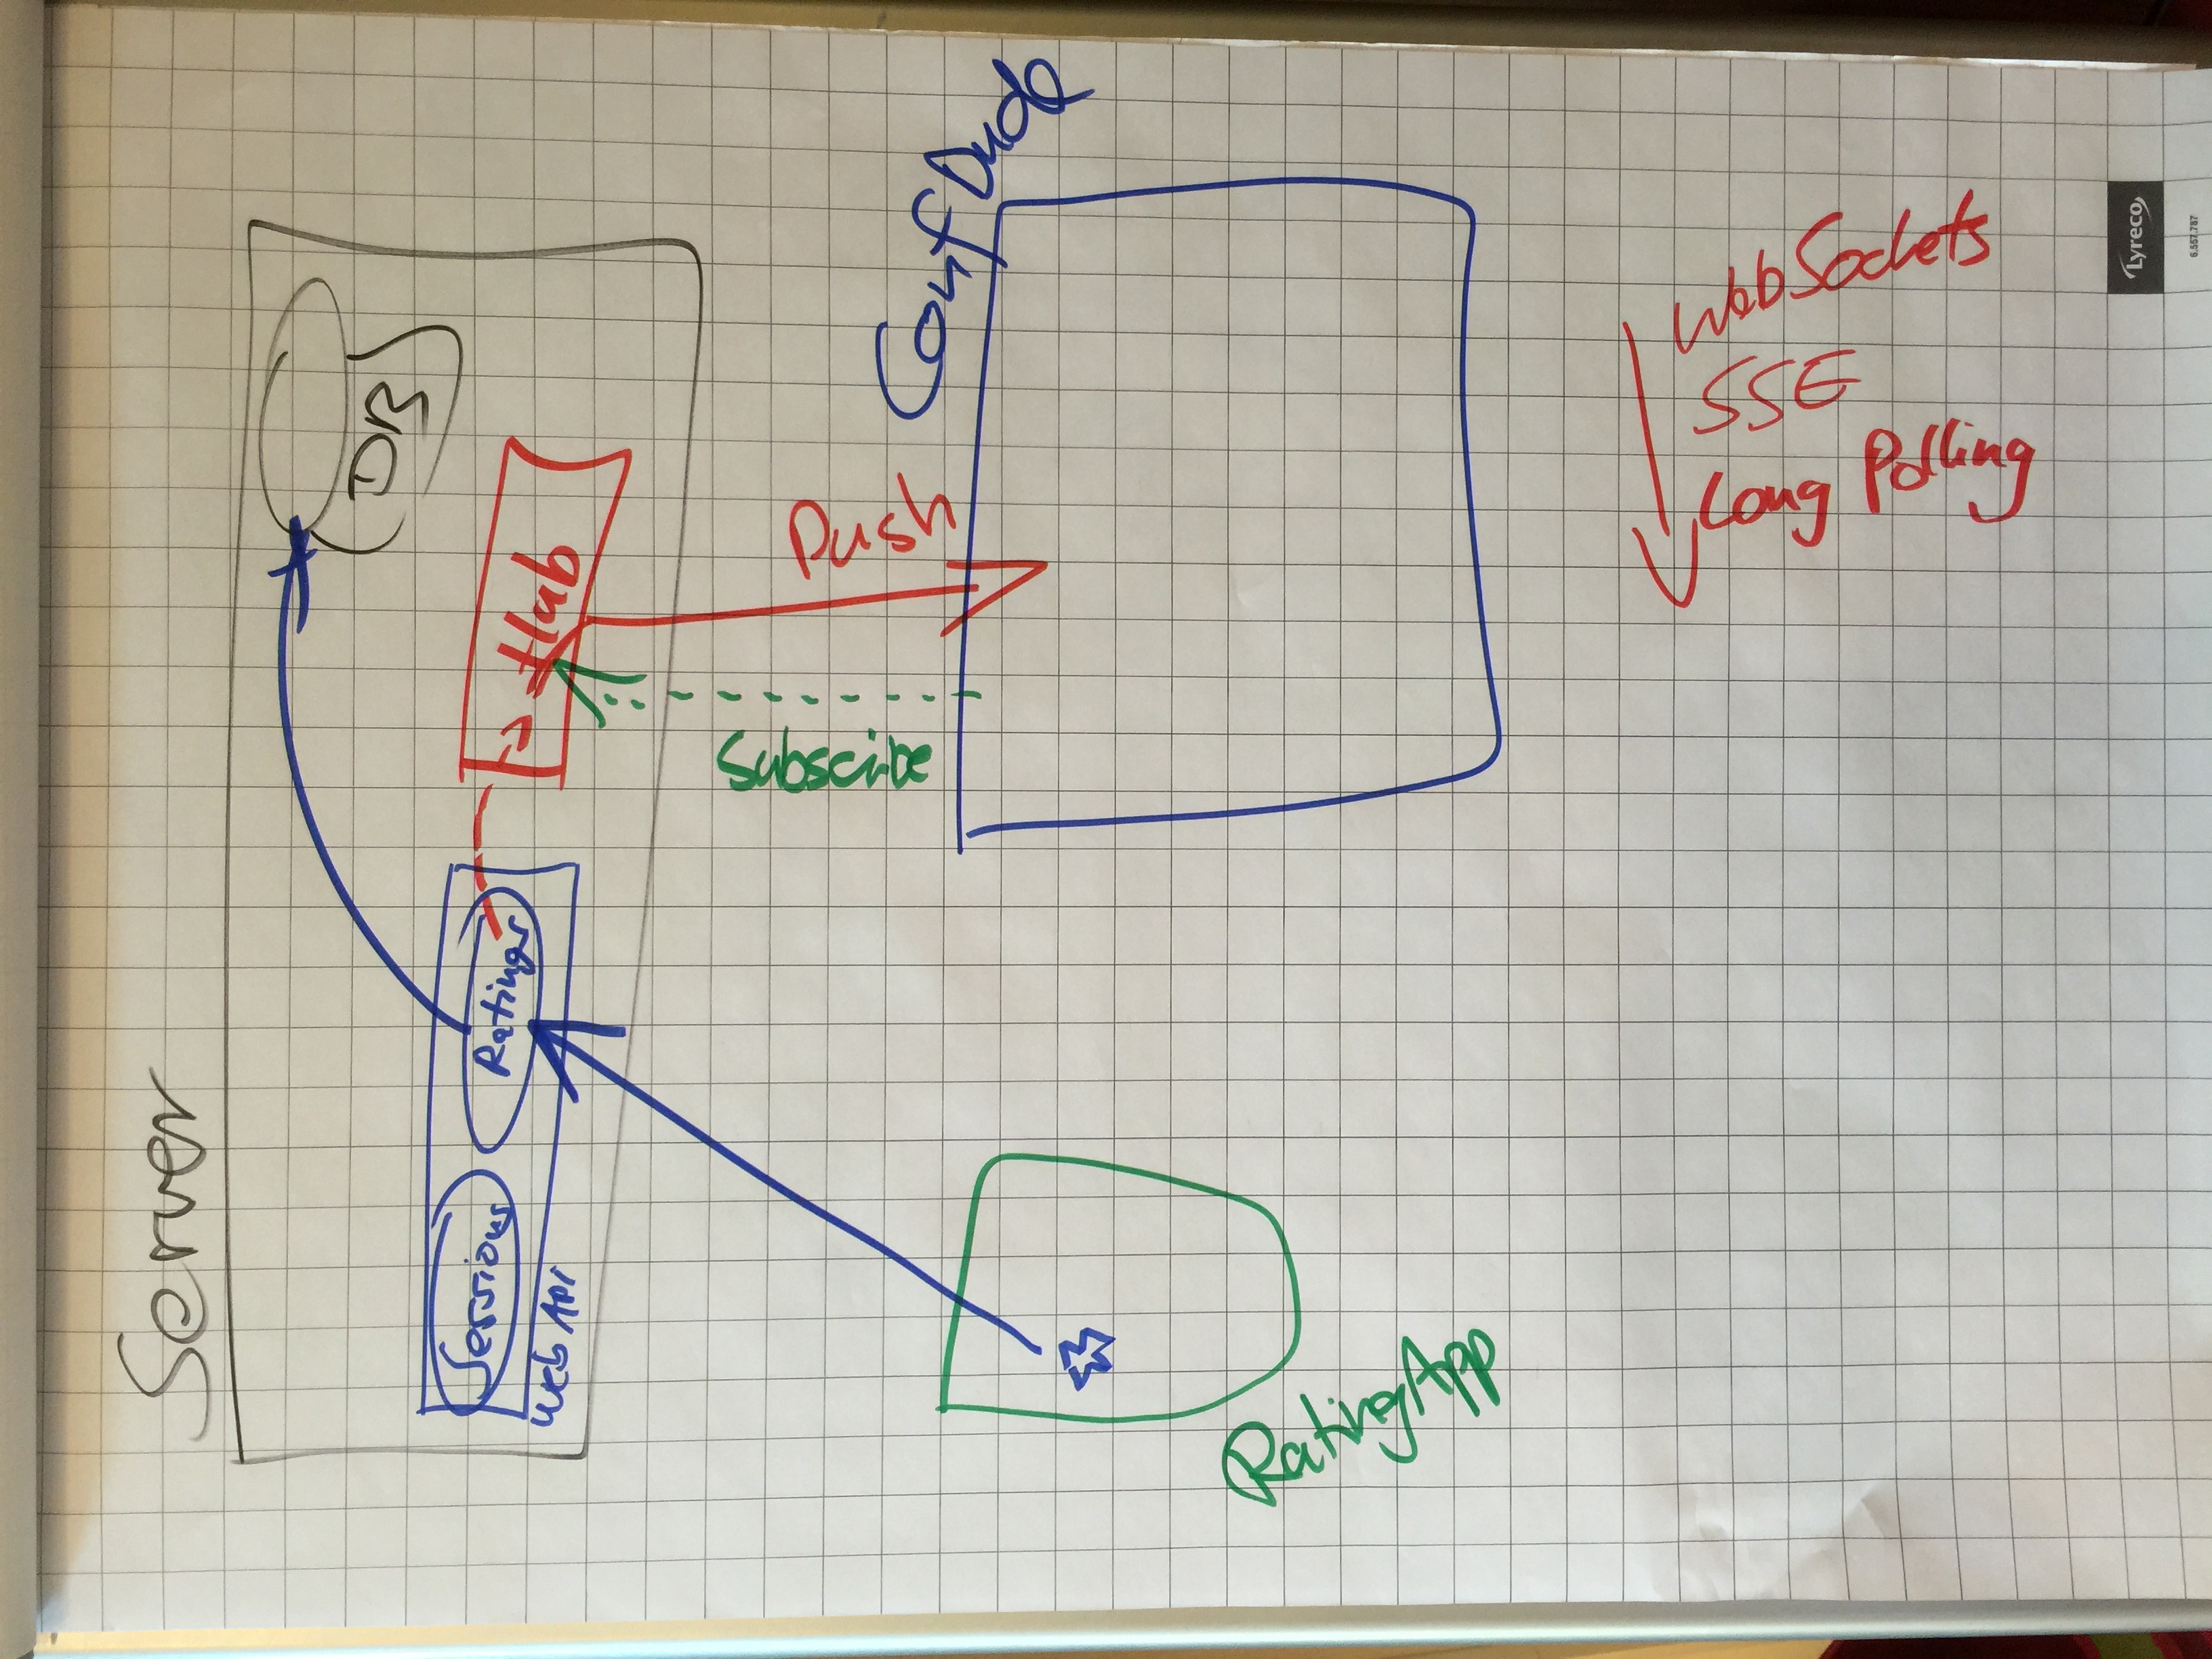 Server
DB
Sessions
Ratings
Hub
Web API
Subscribe
Push
ConfDude
RatingApp
WebSockets
SSE
Long Polling
Lyreco
6.557.787